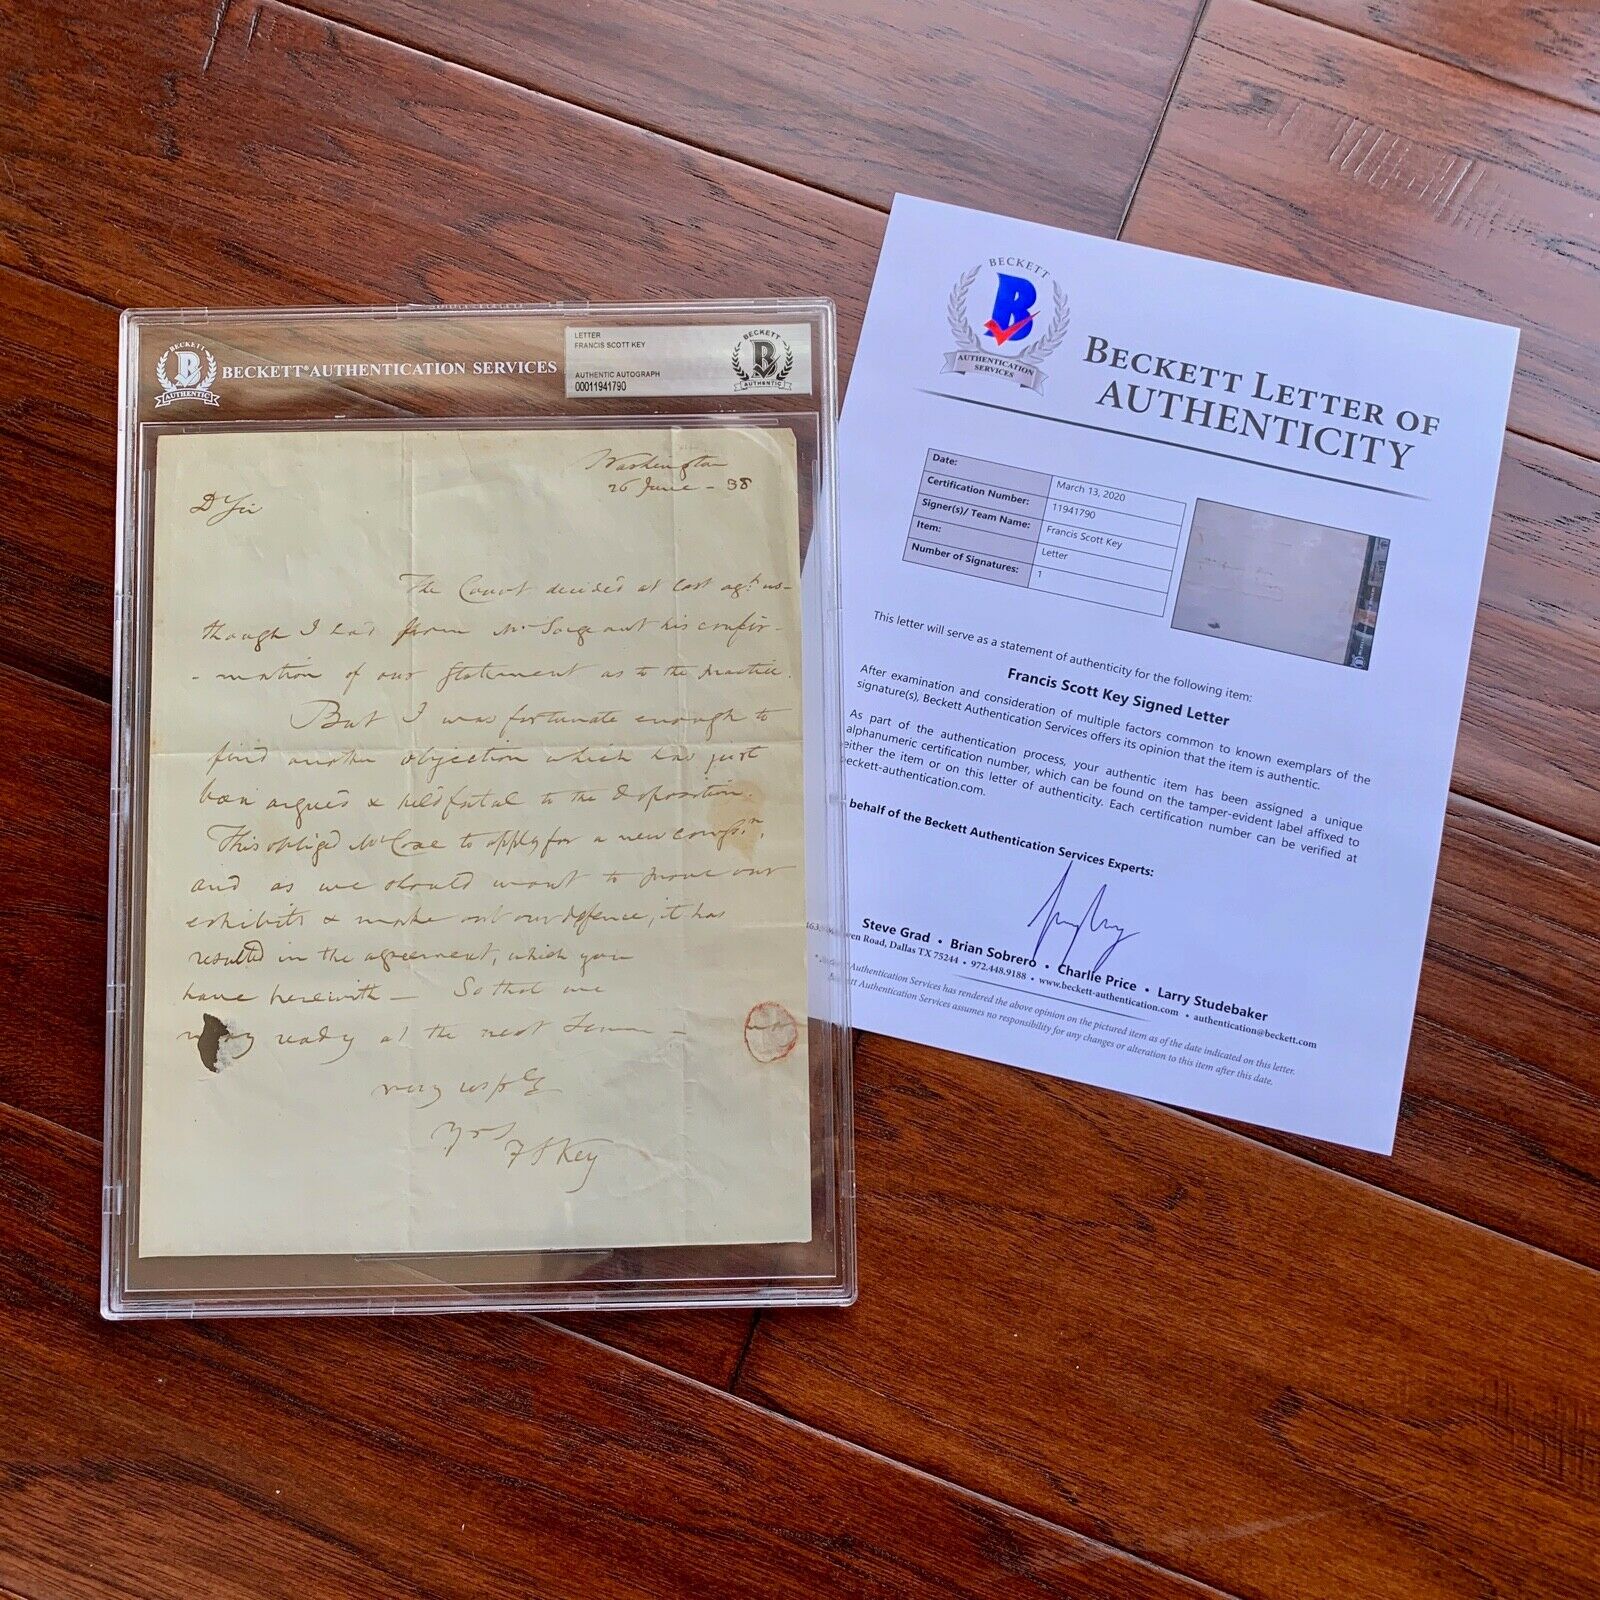 BECKETT
B
AUTHENTIC
BECKETT AUTHENTICATION SERVICES
LETTER
FRANCIS SCOTT KEY
AUTHENTIC AUTOGRAPH
00011941790
BECKETT
B
AUTHENTIC
Washington
26 June - 38
D Sir
The Court decided at last agt us -
though I had from Mr Sargeant his confir-
-mation of our Statement as to the practice.
But I was fortunate enough to
find another objection which has just
been argued & held fatal to the deposition.
This obliged Mr Coxe to apply for a new
and as we should want to prove our
exhibits & make out our defence, it has
resulted in the agreement, which you
have herewith - So that we
may ready at the next Term -
very
Yrs
F S Key
BECKETT
B
AUTHENTICATION
SERVICES
BECKETT LETTER OF
AUTHENTICITY
Date: March 13, 2020
Certification Number: 11941790
Signer(s)/ Team Name: Francis Scott Key
Item: Letter
Number of Signatures: 1
This letter will serve as a statement of authenticity for the following item:
Francis Scott Key Signed Letter
After examination and consideration of multiple factors common to known exemplars of the
signature(s), Beckett Authentication Services offers its opinion that the item is authentic.
As part of the authentication process, your authentic item has been assigned a unique
alphanumeric certification number, which can be found on the tamper-evident label affixed to
either the item or on this letter of authenticity. Each certification number can be verified at
beckett-authentication.com.
behalf of the Beckett Authentication Services Experts:
Steve Grad • Brian Sobrero • Charlie Price • Larry Studebaker
Road, Dallas TX 75244 • 972.448.9188 • www.beckett-authentication.com • authentication@beckett.com
Authentication Services has rendered the above opinion on the pictured item as of the date indicated on this letter.
Authentication Services assumes no responsibility for any changes or alteration to this item after this date.